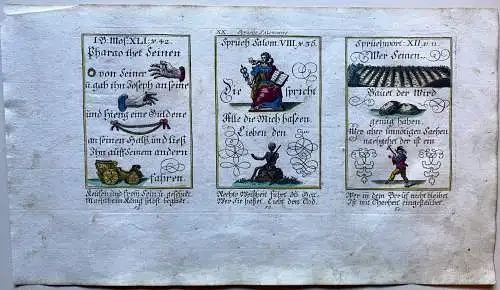 XX Sprüche Salomonis
I B. Mos. XLI. v. 42.
Pharao thet Seinen
von Seiner
u. gab ihn Joseph an seine
und hieng eine Guldene
an seinen Halß und ließ
Ihn auff Seinem andern
fahren.
Sprüch Salom. VIII. v. 36.
Die spricht
Alle die Mich hassen
Lieben den
Rechte Weißheit führt
Wer Sie haßet, Liebt den Tod.
Sprüchwört. XII. v. 11.
Wer Seinen
Bauet der Wird
genug haben,
Wer aber unnötigen Sachen
nachgehet der ist ein
Wer in dem Beruf nicht bleibet
Ist mit Thorheit